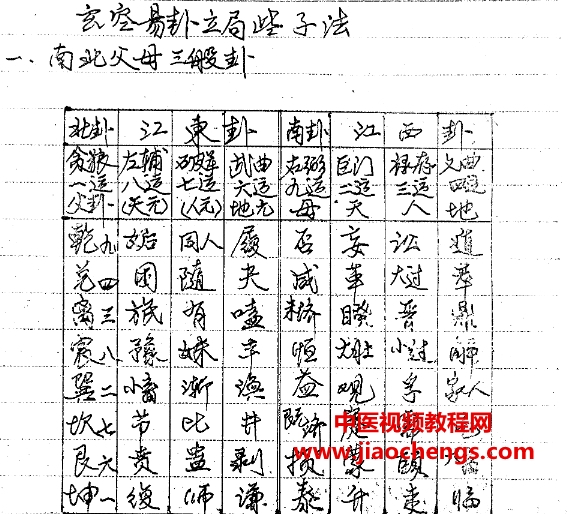 玄空易卦立局些子法
一、南北父母三般卦
北卦 江 東 卦 南卦 江 西 卦
贪狼一运父卦 左辅八运(天元) 破军七运(人元) 武曲六运地元 右弼九运母 巨门二运天 禄存三运人 文曲四运地
乾九 姤 同人 履 否 妄 讼 遁
兑四 困 随 夬 咸 革 大过 萃
离三 旅 有 嗑 未济 睽 晋 鼎
震八 豫 妹 丰 恒 大壮 小过 解
巽二 小畜 渐 涣 益 观 孚 家人
坎七 节 比 井 既济
艮六 贲 蛊 剥 损 蒙 颐
坤一 復 师 谦 泰 升 夷 临
中医视频教程网
www.jiaochengs.com